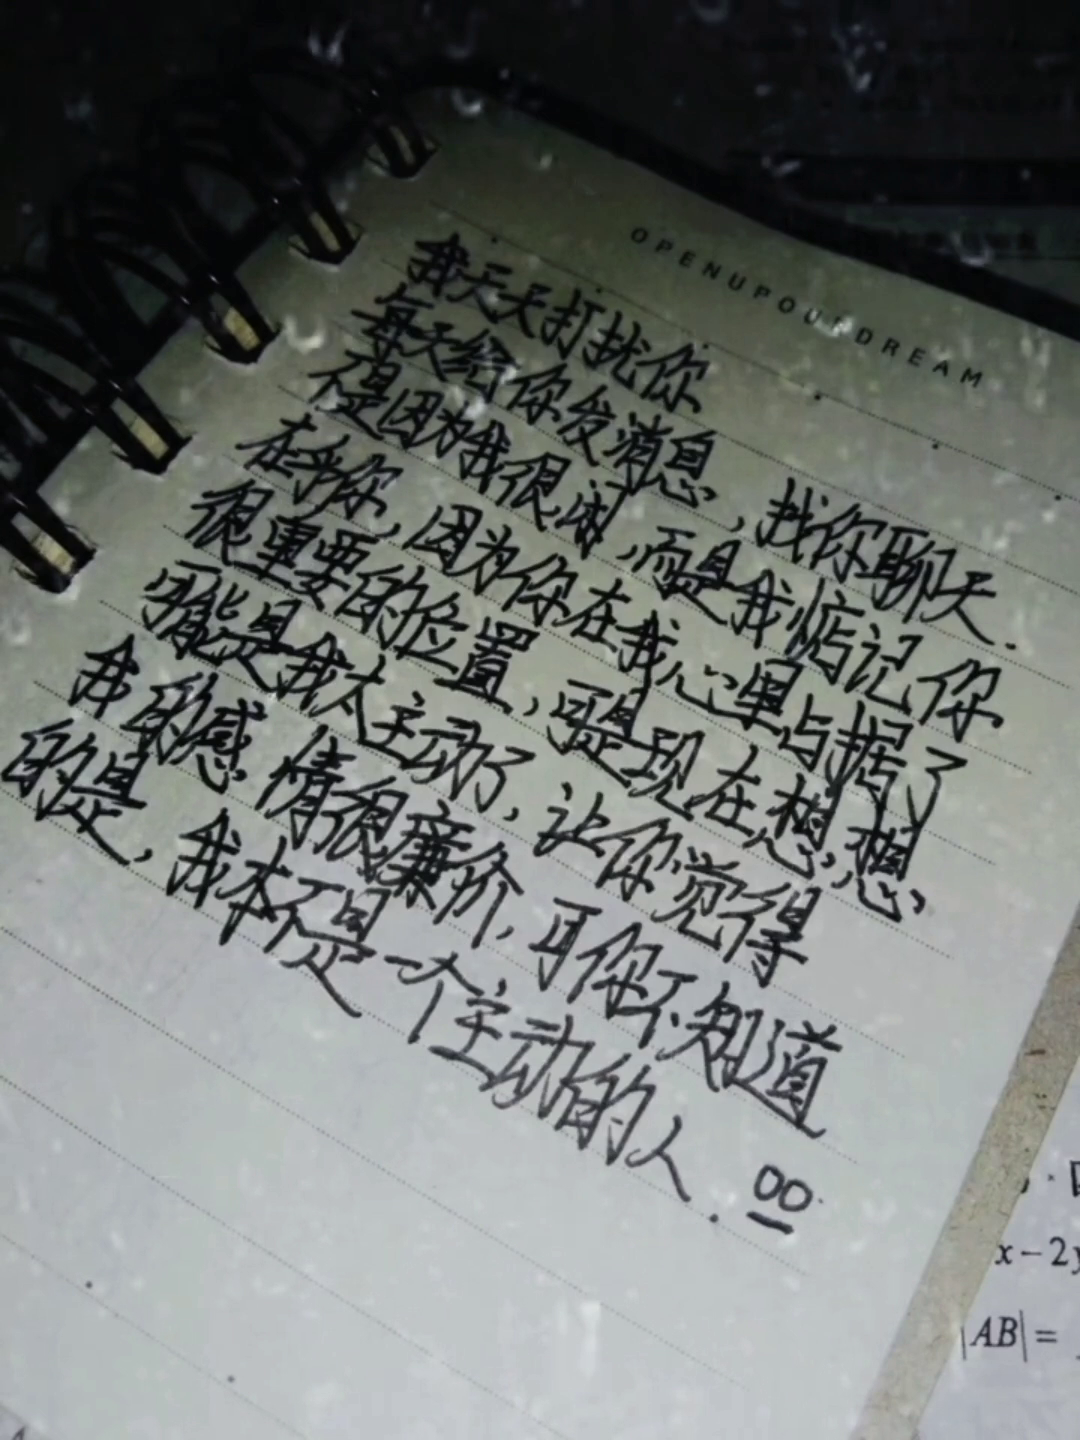 OPENUPOURDREAM
我天天打扰你
每天给你发消息，找你聊天.
不是因为我很闲，而是我惦记你
在乎你，因为你在我心里占据了
很重要的位置，可是现在想想，
可能是我太主动了，让你觉得
我的感情很廉价，可你不知道
的是，我本不是一个主动的人.
x-2y
|AB|=